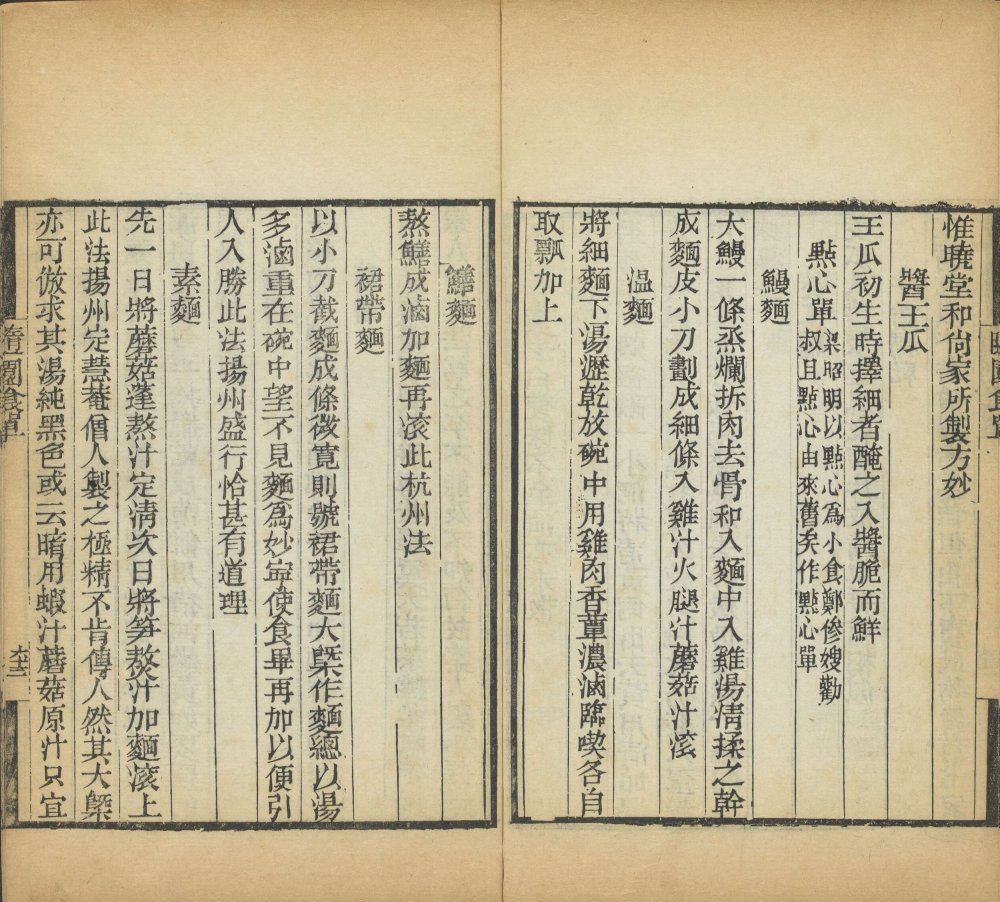 惟曉堂和尙家所製方妙
醬王瓜
王瓜初生時擇細者醃之入醬脆而鮮
點心單
梁昭明以點心爲小食鄭傪嫂勸
叔且點心由來舊矣作點心單
鰻麵
大鰻一條烝爛拆肉去骨和入麵中入雞湯淸揉之幹
成麵皮小刀劃成細條入雞汁火腿汁蘑菇汁滾
温麵
將細麵下湯瀝乾放碗中用雞肉香蕈濃滷臨喫各自
取瓢加上
鱔麵
熬鱔成滷加麵再滾此杭州法
裙帶麵
以小刀截麵成條微寬則號裙帶麵大槩作麵總以湯
多滷重在碗中望不見麵爲妙寕使食畢再加以便引
人入勝此法揚州盛行恰甚有道理
素麵
先一日將蘑菇蓬熬汁定淸次日將笋熬汁加麵滾上
此法揚州定慧菴僧人製之極精不肯傳人然其大槩
亦可倣求其湯純黑色或云暗用蝦汁蘑菇原汁只宜
隨園食單